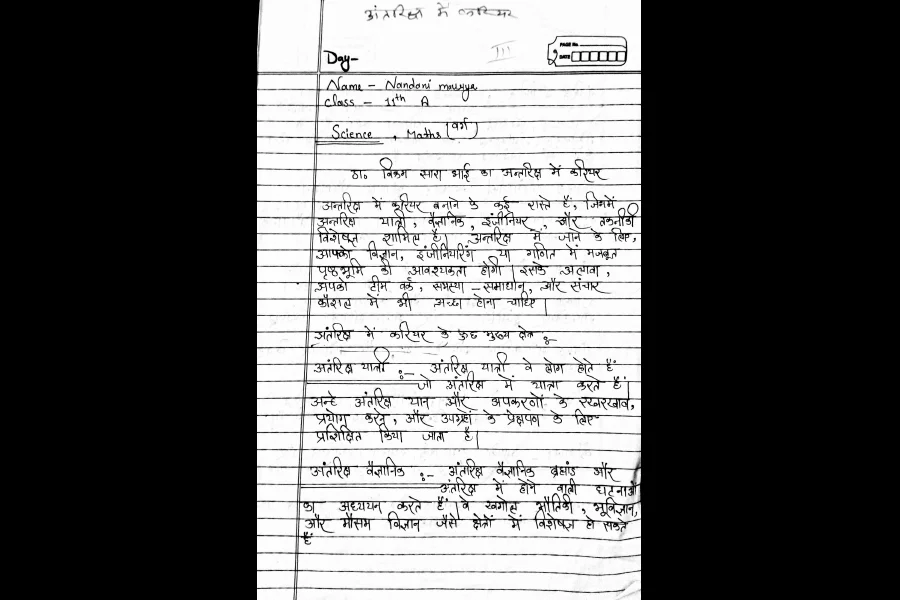 अंतरिक्ष में करियर
III
PAGE No.
DATE
Day-
Name - Nandani maurya
Class - 11th A
Science , Maths (वर्ग)
डा. विक्रम सारा भाई का अन्तरिक्ष में करियर
अन्तरिक्ष में करियर बनाने के कई रास्ते हैं, जिनमें
अन्तरिक्ष यात्री, वैज्ञानिक, इंजीनियर, और तकनीकी
विशेषज्ञ शामिल है। अन्तरिक्ष में जाने के लिए,
आपको विज्ञान, इंजीनियरिंग या गणित में मजबूत
पृष्ठभूमि की आवश्यकता होगी। इसके अलावा,
आपको टीम वर्क, समस्या-समाधान, और संचार
कौशल में भी अच्छा होना चाहिए।
अंतरिक्ष में करियर के कुछ मुख्य क्षेत्र :-
अंतरिक्ष यात्री :- अंतरिक्ष यात्री वे लोग होते हैं
जो अंतरिक्ष में यात्रा करते हैं।
उन्हे अंतरिक्ष यान और उपकरणों के रखरखाव,
प्रयोग करने, और उपग्रहों के प्रेक्षपण के लिए
प्रशिक्षित किया जाता है।
अंतरिक्ष वैज्ञानिक :- अंतरिक्ष वैज्ञानिक ब्रह्मांड और
अंतरिक्ष में होने वाली घटनाओं
का अध्ययन करते हैं। वे खगोल भौतिकी, भूविज्ञान,
और मौसम विज्ञान जैसे क्षेत्रों में विशेषज्ञ हो सकते
हैं